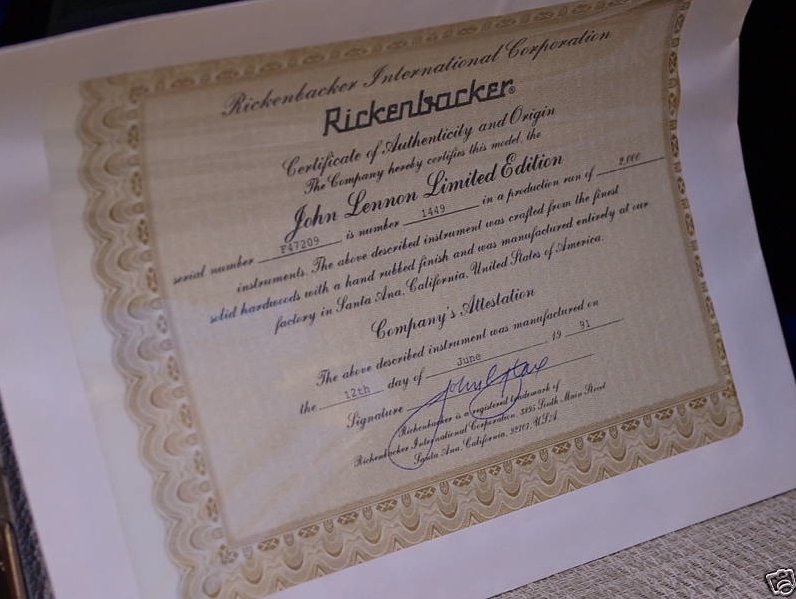 Rickenbacker International Corporation
Rickenbacker®
Certificate of Authenticity and Origin
The Company hereby certifies this model, the
John Lennon Limited Edition
serial number F47209 is number 1449 in a production run of 2,000
instruments. The above described instrument was crafted from the finest
solid hardwoods with a hand rubbed finish and was manufactured entirely at our
factory in Santa Ana, California, United States of America.
Company's Attestation
The above described instrument was manufactured on
the 12th day of June 19 91
Signature
Rickenbacker is a registered trademark of
Rickenbacker International Corporation, 3895 South Main Street
Santa Ana, California, 92707, U.S.A.